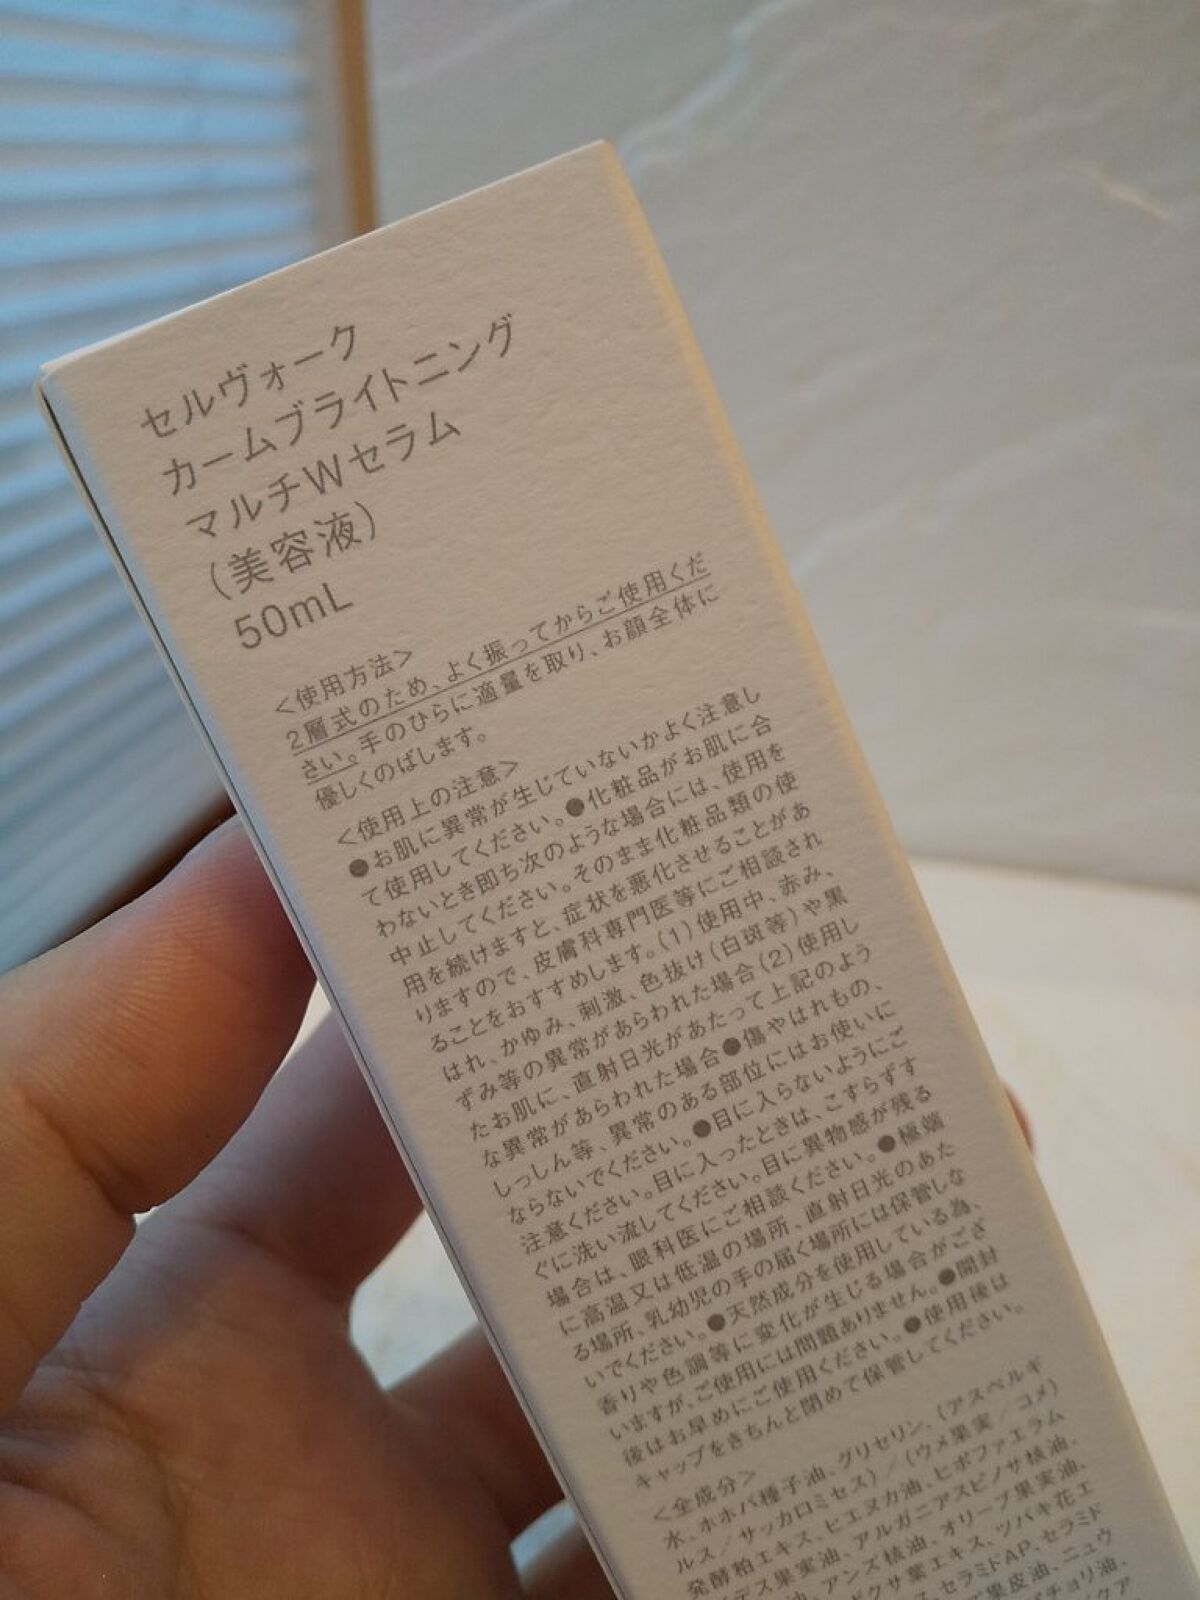 セルヴォーク
カームブライトニング
マルチWセラム
(美容液)
50mL
<使用方法>
2層式のため、よく振ってからご使用くだ
さい。手のひらに適量を取り、お顔全体に
優しくのばします。
<使用上の注意>
●お肌に異常が生じていないかよく注意し
て使用してください。●化粧品がお肌に合
わないとき即ち次のような場合には、使用を
中止してください。そのまま化粧品類の使
用を続けますと、症状を悪化させることがあ
りますので、皮膚科専門医等にご相談され
ることをおすすめします。(1)使用中、赤み、
はれ、かゆみ、刺激、色抜け(白斑等)や黒
ずみ等の異常があらわれた場合(2)使用し
たお肌に、直射日光があたって上記のよう
な異常があらわれた場合●傷やはれもの、
しっしん等、異常のある部位にはお使いに
ならないでください。●目に入らないようにご
注意ください。目に入ったときは、こすらずす
ぐに洗い流してください。目に異物感が残る
場合は、眼科医にご相談ください。●極端
に高温又は低温の場所、直射日光のあた
る場所、乳幼児の手の届く場所には保管しな
いでください。●天然成分を使用している為、
香りや色調等に変化が生じる場合がござ
いますが、ご使用には問題ありません。●開封
後はお早めにご使用ください。●使用後は
キャップをきちんと閉めて保管してください。
<全成分>
水、ホホバ種子油、グリセリン、(アスペルギ
ルス/サッカロミセス)/(ウメ果実/コメ)
発酵粕エキス、ヒエヌカ油、ヒポファエラム
デス果実油、アルガニアスピノサ核油、
油、アンズ核油、オリーブ果実油、
ドクサ葉エキス、ツバキ花エ
ス、セラミドAP、セラミド
果皮油、ニュウ
パチョリ油、
クア